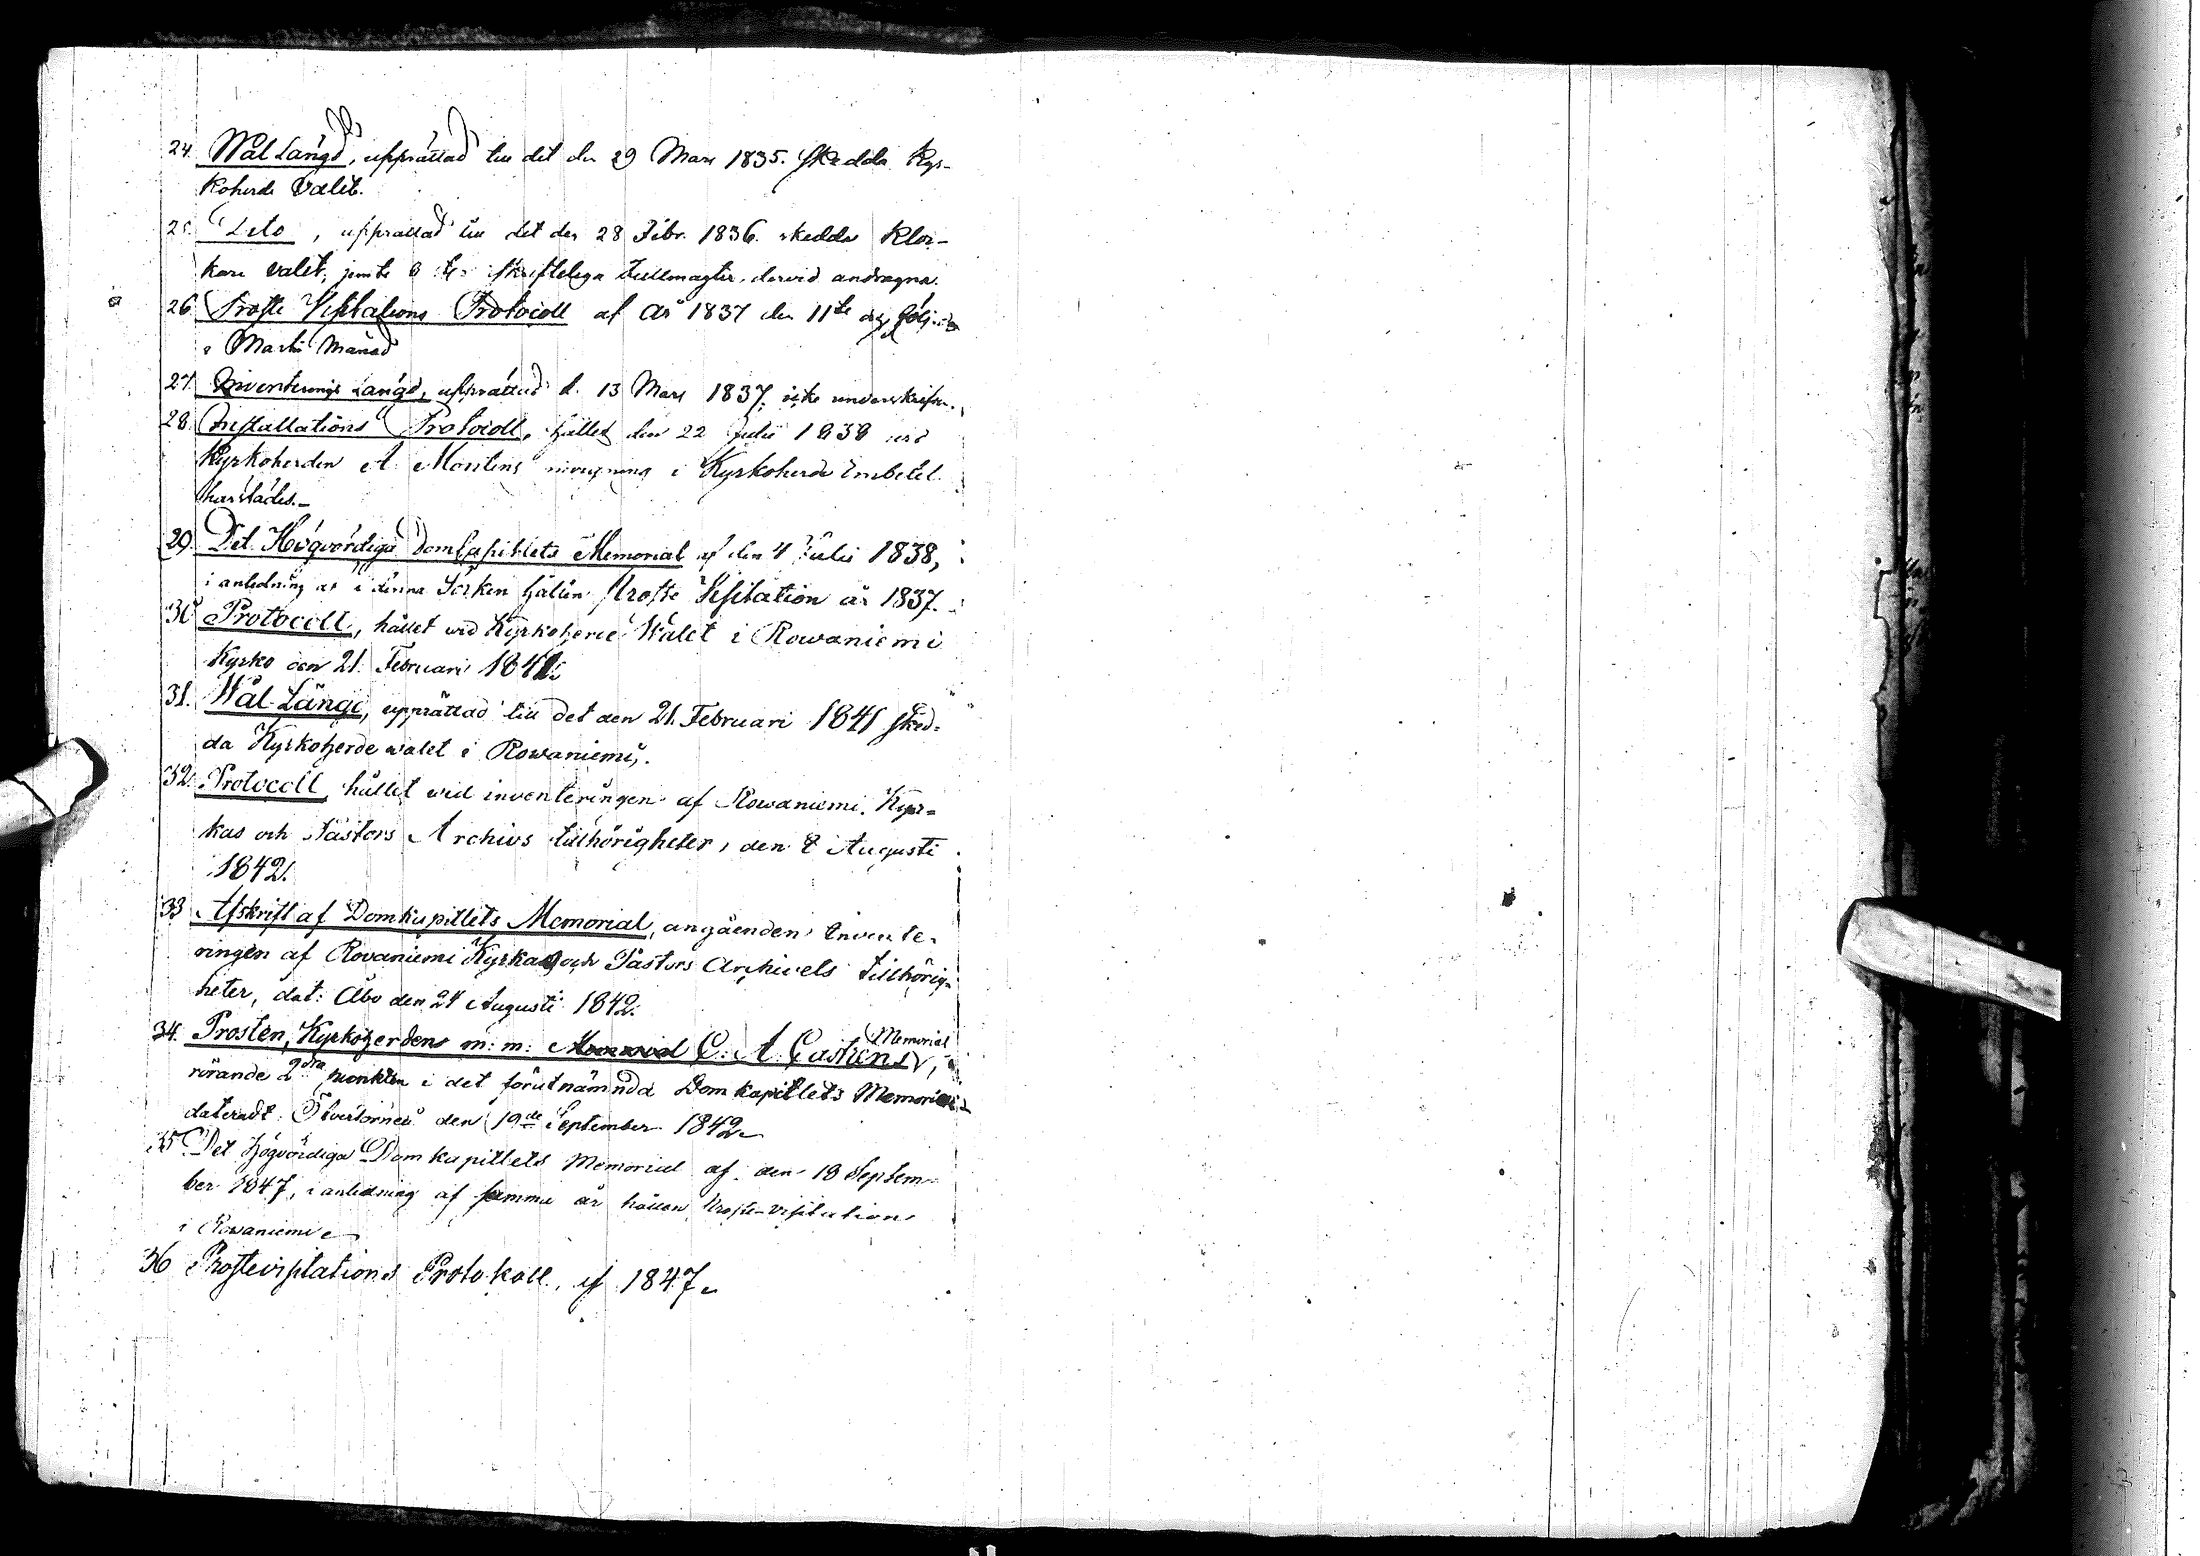 24. Wal Längd, upprättad till det den 29 Mars 1835. skedda Kyr-
koherde Valet.
25. Dito, upprättad till det den 28 Febr. 1836. skedda Kloc-
kare valet, jemte 6 st. skriftelega fullmagter, dervid andragna.
26. Proste Visitations Protocoll af År 1837 den 11te och följande
i Martii Månad
27. Inventerings Längd, upprättad d. 13 Mars 1837, icke underskrifven.
28. Installations Protocoll, hållet den 22 Julii 1838 vid
Kyrkoherden A. Montins invigning i Kyrkoherde Embetet
härstädes.-
29. Det Högvördiga DomCapitlets Memorial af den 4 Julii 1838,
i anledning av i denna Socken hållen Proste Visitation år 1837.
30. Protocoll, hållet wid Kyrkoherde Walet i Rowaniemi
Kyrko den 21. Februari 1841.
31. Wal-Längd, upprättad till det den 21. Februari 1841 sked=
da Kyrkoherde walet i Rowaniemi.
32. Protocoll hållet wid inventeringen af Rowaniemi Kyr=
kas och Pastors Archivs tillhörigheter, den 8 Augusti
1842.
33 Afskrift af Domkapitlets Memorial, angående invente-
ringen af Rovaniemi Kyrkas och Pastors Archivets tillhörig=
heter, dat: Åbo den 24 Augusti 1842.
34. Prosten, Kyrkoherdens m: m: C: A: Castrens Memorial,
rörande 2dra punkten i det förutnämnda Domkapitlets Memorial
dateradt Öfvertorneå den 19de September 1842.
35 Det högvördiga Domkapitlets Memorial af den 18 Septem-
ber 1847, i anledning af samma år hållen Proste-visitation
i Rowaniemi
36 Prostevisitations Protokoll af 1847.